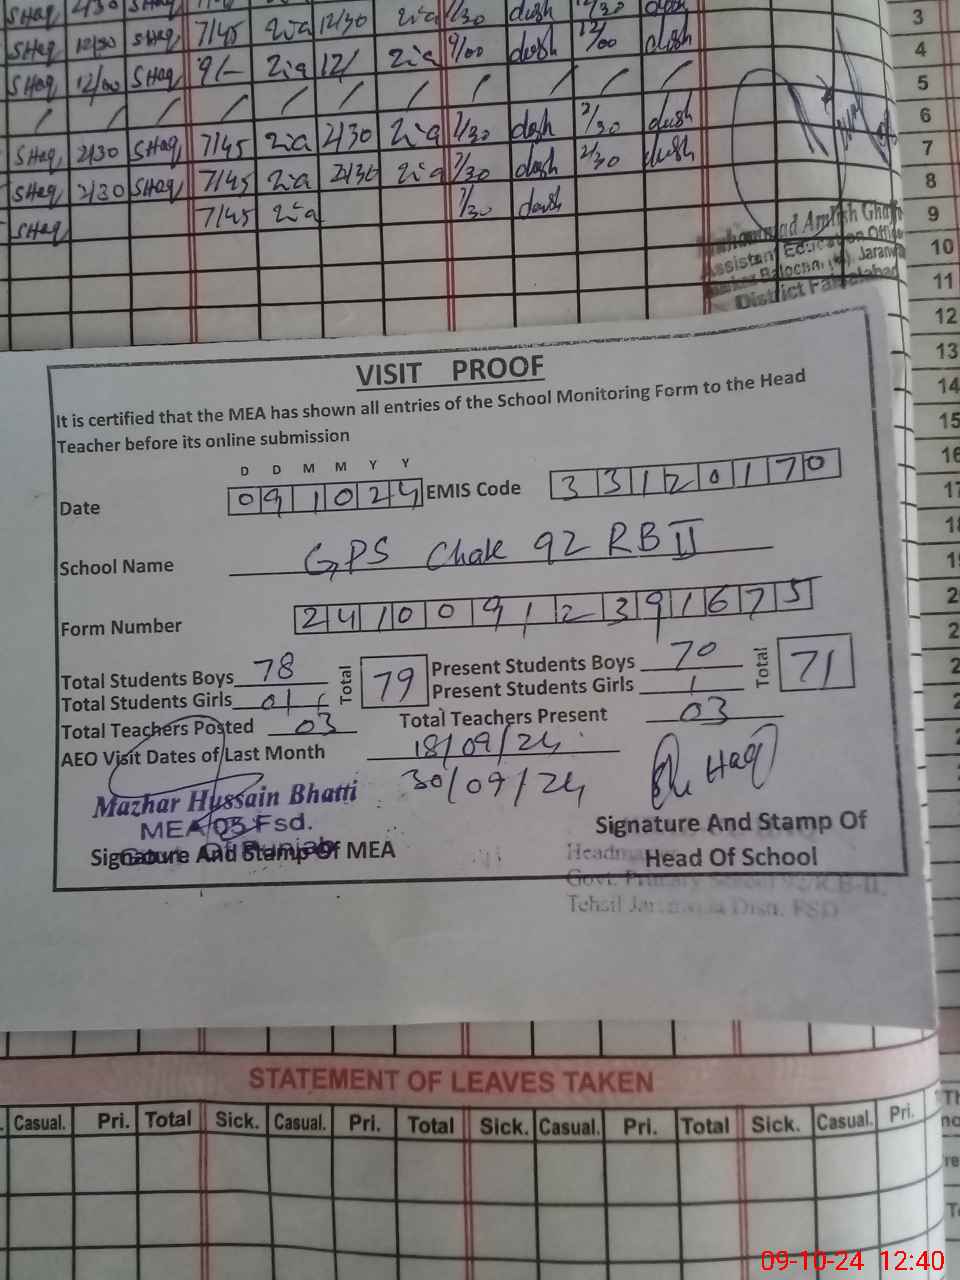 SHaq 2/30 SHaq
3
SHaq 12/30 SHaq 7/45 Zia 12/30 Zia 7/30 dush 12/30 dush
4
SHaq 12/00 SHaq 9/- Zia 12/ Zia 9/00 dush 12/00 dush
5
/ / / / / / / / / / /
6
SHaq 2/30 SHaq 7/45 Zia 2/30 Zia 7/30 dush 2/30 dush
7
SHaq 2/30 SHaq 7/45 Zia 2/30 Zia 7/30 dush 2/30 dush
8
SHaq 7/45 Zia 7/30 dush
9
Assistant Education Officer
10
Jaranwala
District Faisalabad
11
12
13
14
15
16
17
VISIT PROOF
It is certified that the MEA has shown all entries of the School Monitoring Form to the Head
Teacher before its online submission
D D M M Y Y
Date 09 10 24 EMIS Code 33120170
School Name GPS Chak 92 RB II
Form Number 24100912391675
Total Students Boys 78 Total 79 Present Students Boys 70 Total 71
Total Students Girls 01 Present Students Girls 1
Total Teachers Posted 03 Total Teachers Present 03
AEO Visit Dates of Last Month 18/09/24
30/09/24
Mazhar Hussain Bhatti
MEA/03 Fsd.
Signature And Stamp Of MEA
Signature And Stamp Of
Head Of School
Govt. Primary School 92/R.B-II,
Tehsil Jaranwala Distt. FSD
STATEMENT OF LEAVES TAKEN
Casual. Pri. Total Sick. Casual. Pri. Total Sick. Casual. Pri. Total Sick. Casual. Pri.
09-10-24 12:40